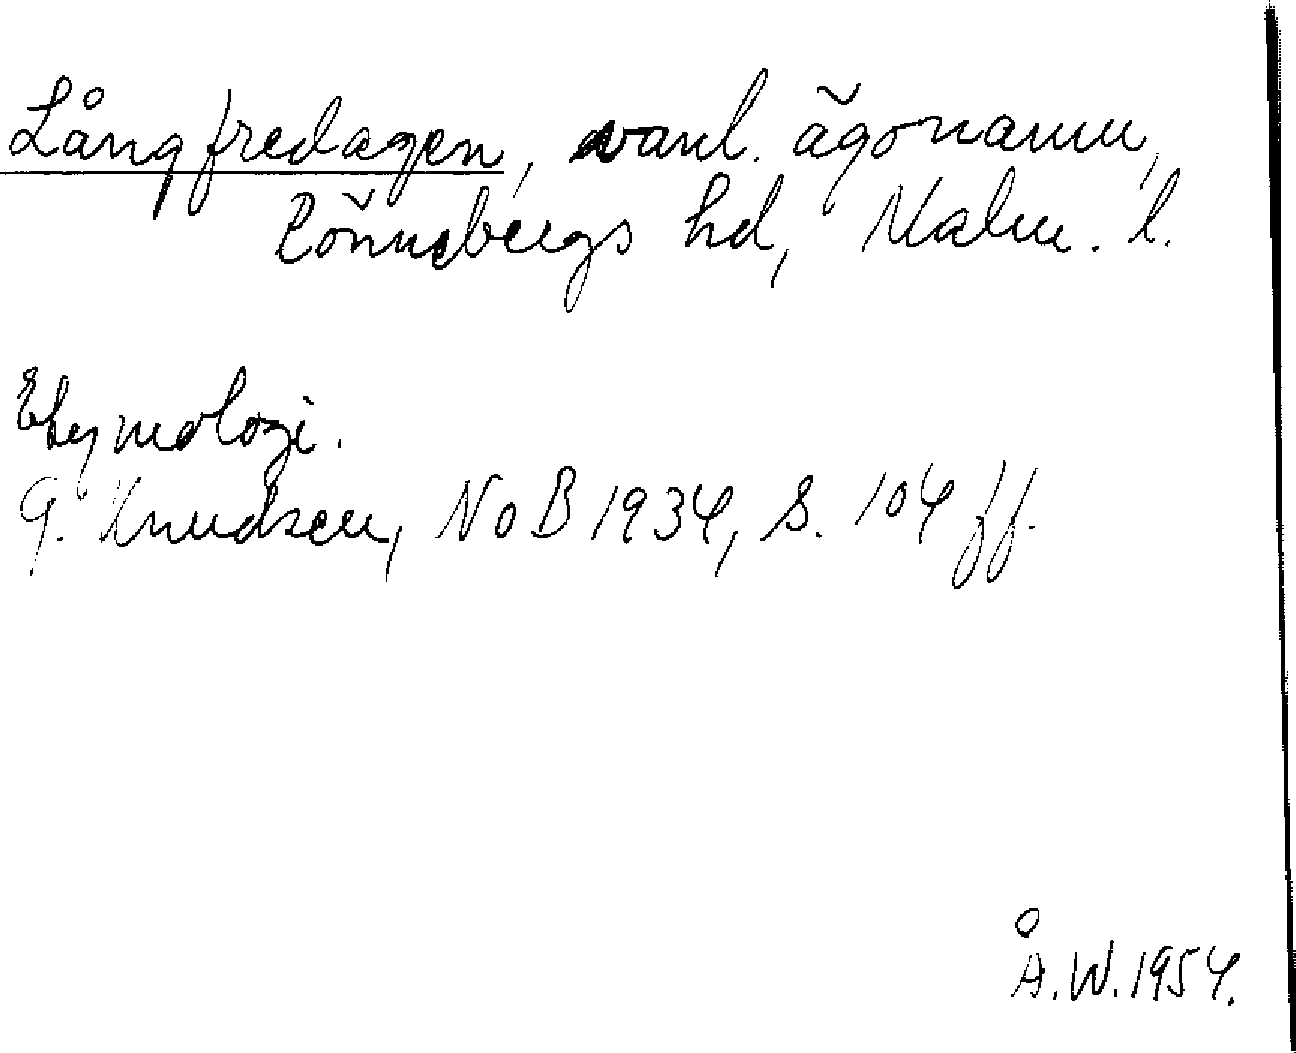 Långfredagen, vanl. ägonamn,
Rönnebergs hd, Malm. l.
Etymologi.
G. Knudsen, NoB 1934, s. 104 ff.
Å.W. 1954.